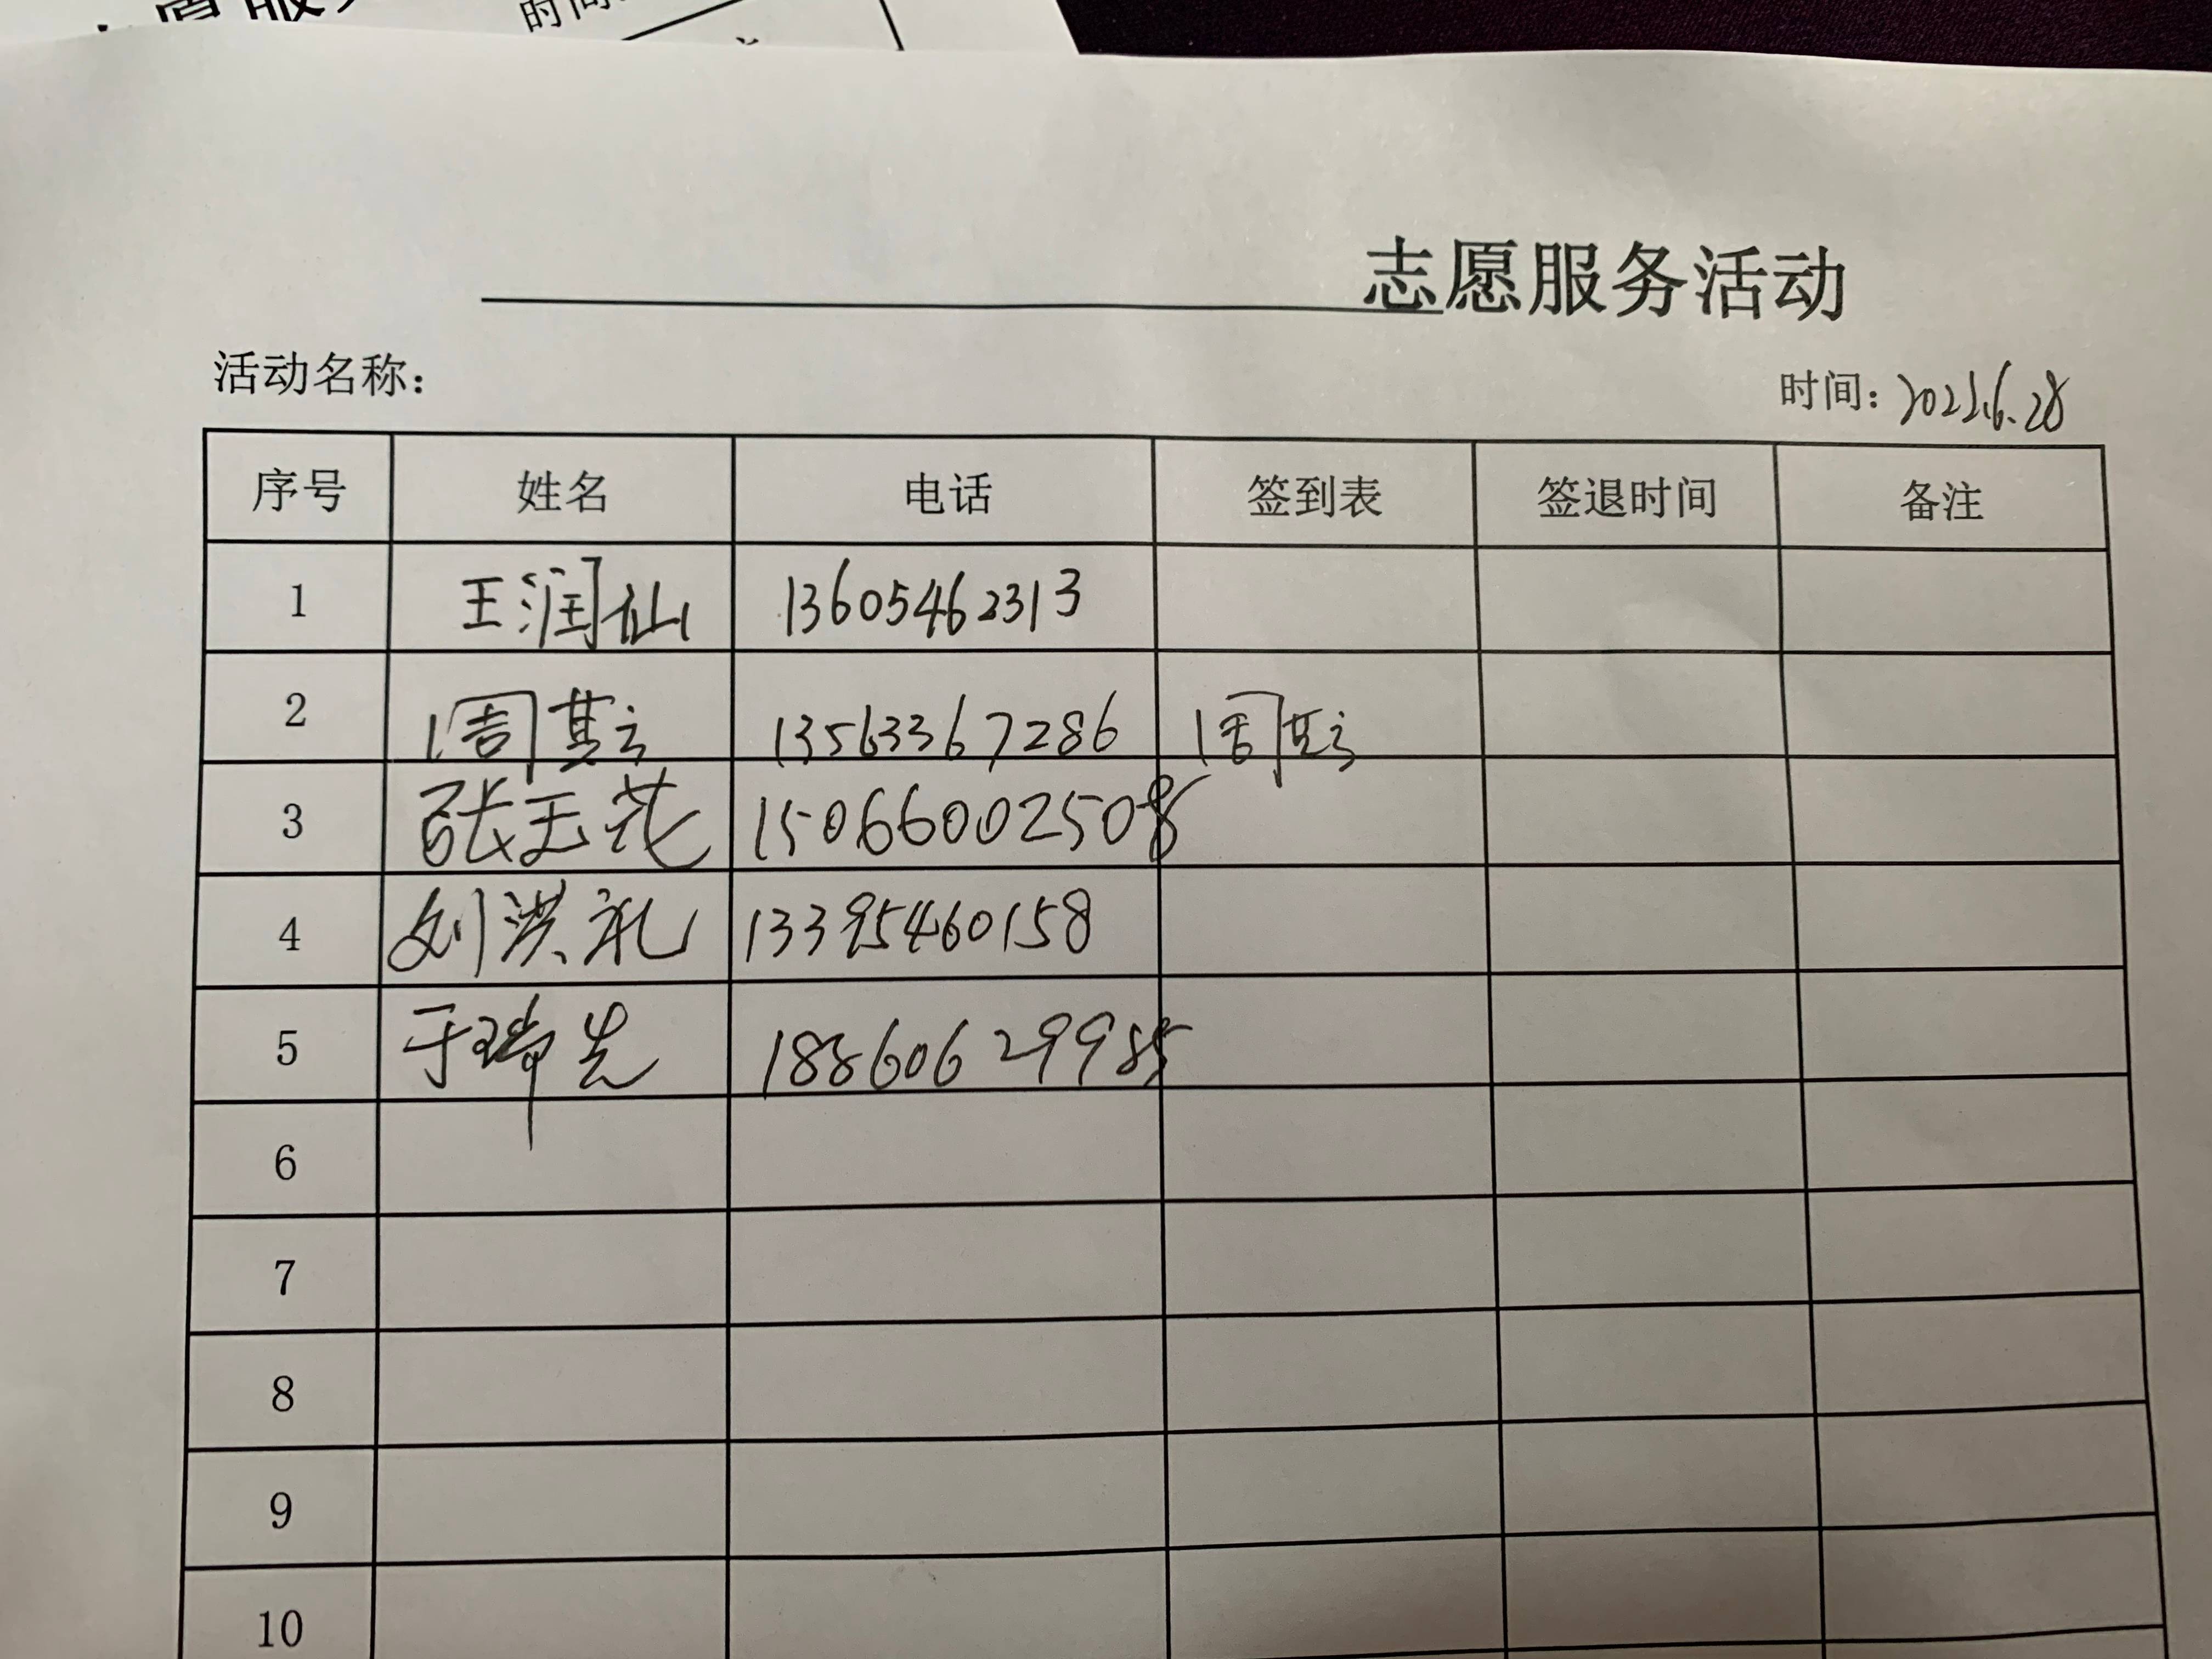 时间
志愿服务活动
活动名称：
时间：2022.6.28
序号 姓名 电话 签到表 签退时间 备注
1 王润仙 13605462313
2 周其云 13563367286 周其云
3 张玉花 15066002508
4 刘洪礼 13395460158
5 于瑞先 18860629985
6
7
8
9
10